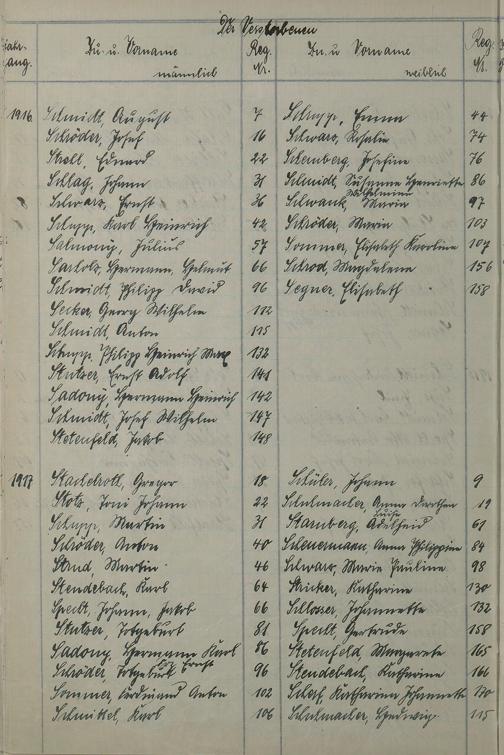 Der Verstorbenen
Jahr-
gang.
Zu. u. Vorname
männlich
Reg.
Nr.
Zu. u. Vorname
weiblich
Reg.
Nr.
1916 Schmidt, August 7 Schupp, Emma 44
Schröder, Josef 16 Schwarz, Rosalie 74
Stoll, Eduard 22 Schemberg, Josefine 76
Schlag, Johann 31 Schmidt, Susanne Henriette 86
Wilhelmine
Schwarz, Ernst 36 Schwank, Maria 97
Schupp, Karl Heinrich 42 Schröder, Maria 103
Salmonig, Julius 57 Sommer, Elisabeth Karoline 107
Sartolz, Hermann, Helmut 66 Schrod, Magdalena 156
Schmidt, Philipp David 96 Segner, Elisabeth 158
Secker, Georg Wilhelm 112
Schmidt, Anton 115
Schupp, Philipp Heinrich Max 132
Stutzer, Ernst Adolf 141
Sadony, Hermann Heinrich 142
Schmidt, Josef Wilhelm 147
Stetenfeld, Jakob 148
1917 Gregor 18 Schüler, Johanna 9
Stotz, Toni Johann 22 Schumacher, Anna Dorothea 19
Luise
Schupp, Martin 31 Stamberg, Adelheid 61
Schröder, Anton 40 Scheuermann, Anna Philippine 84
Strud, Martin 46 Schwarz, Marie Pauline 98
Stendebach, Karl 64 Stricker, Katharine 130
Specht, Johann, Jakob 66 Schlosser, Johannette 132
Stutzer, Totgeburt 81 Specht, Gertrude 158
Sadony, Hermann Karl 86 Stetenfeld, Margarete 165
Ernst
Schröder, Totgeburt 96 Stendebach, Katharine 166
Sommer, Ferdinand Anton 102 Scherf, Katharina Johannette 170
Schmittel, Karl 106 Schumacher, Hedwig 115